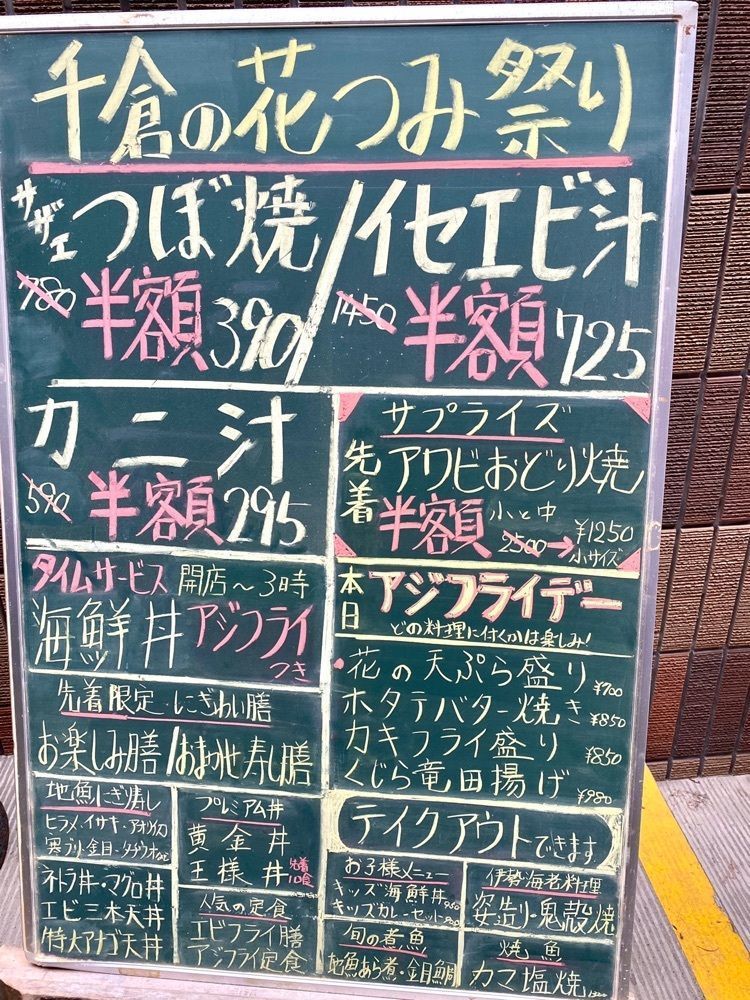 千倉の花つみ祭り
サザエ つぼ焼/イセエビ汁
780 半額 390/1450 半額 725
カニ汁
590 半額 295
サプライズ
先着 アワビおどり焼
半額 小と中
2500→¥1250
小サイズ
タイムサービス 開店～3時
海鮮丼 アジフライ
つき
本日 アジフライデー
どの料理に付くかは楽しみ!
花の天ぷら盛り ¥700
ホタテバター焼き ¥850
カキフライ盛り ¥850
くじら竜田揚げ ¥980
先着限定・にぎわい膳
お楽しみ膳/おまかせ寿し膳
地魚にぎ寿し
ヒラメ・イサキ・アオリイカ
寒ブリ・金目・タチウオなど
ネトラ丼・マグロ丼
エビ三本天丼
特大アナゴ天丼
プレミアム丼
黄金丼
王様丼 先着10食
人気の定食
エビフライ膳
アジフライ定食
テイクアウトできます
お子様メニュー
キッズ海鮮丼
キッズカレーセット
旬の煮魚
地魚あら煮・金目鯛
伊勢海老料理
姿造り・鬼殻焼
焼魚
カマ塩焼